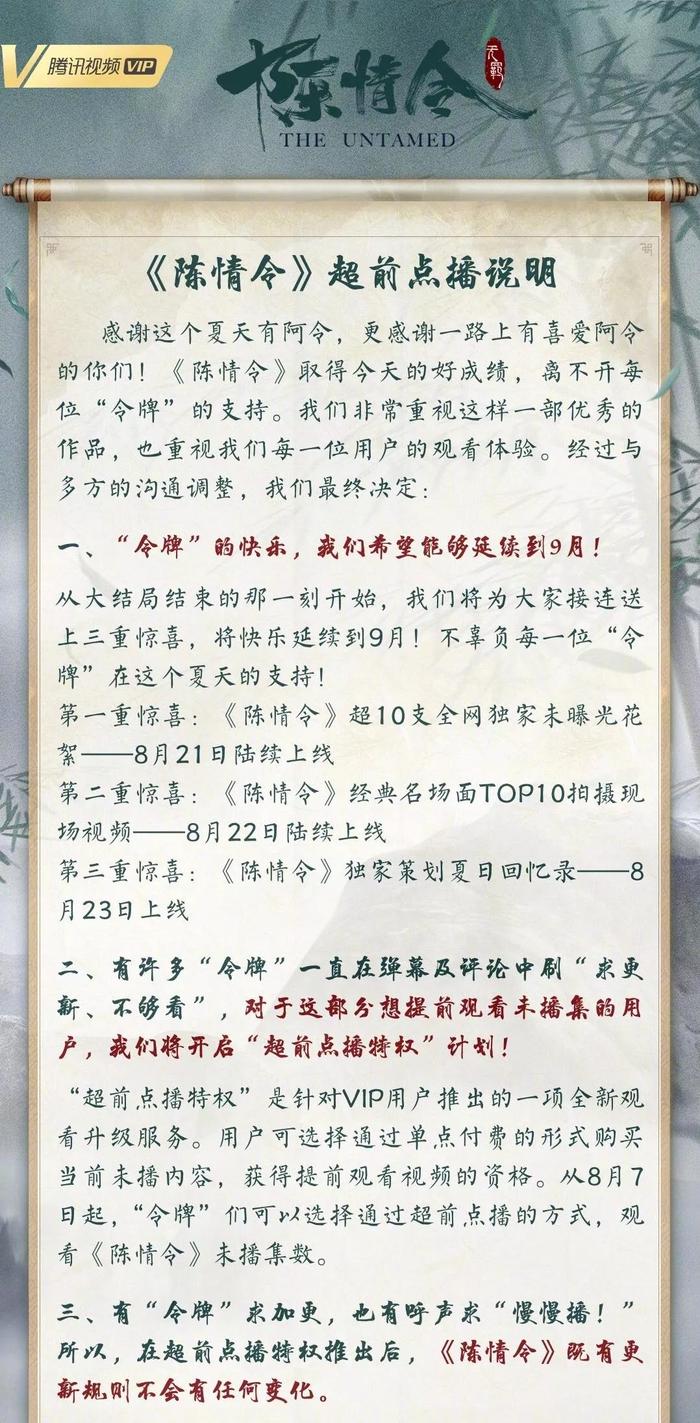 腾讯视频 VIP
陈情令
无羁
THE UNTAMED
《陈情令》超前点播说明
感谢这个夏天有阿令，更感谢一路上有喜爱阿令
的你们！《陈情令》取得今天的好成绩，离不开每
位“令牌”的支持。我们非常重视这样一部优秀的
作品，也重视我们每一位用户的观看体验。经过与
多方的沟通调整，我们最终决定：
一、“令牌”的快乐，我们希望能够延续到9月！
从大结局结束的那一刻开始，我们将为大家接连送
上三重惊喜，将快乐延续到9月！不辜负每一位“令
牌”在这个夏天的支持！
第一重惊喜：《陈情令》超10支全网独家未曝光花
絮——8月21日陆续上线
第二重惊喜：《陈情令》经典名场面TOP10拍摄现
场视频——8月22日陆续上线
第三重惊喜：《陈情令》独家策划夏日回忆录——8
月23日上线
二、有许多“令牌”一直在弹幕及评论中刷“求更
新、不够看”，对于这部分想提前观看未播集的用
户，我们将开启“超前点播特权”计划！
“超前点播特权”是针对VIP用户推出的一项全新观
看升级服务。用户可选择通过单点付费的形式购买
当前未播内容，获得提前观看视频的资格。从8月7
日起，“令牌”们可以选择通过超前点播的方式，观
看《陈情令》未播集数。
三、有“令牌”求加更，也有呼声求“慢慢播！”
所以，在超前点播特权推出后，《陈情令》既有更
新规则不会有任何变化。